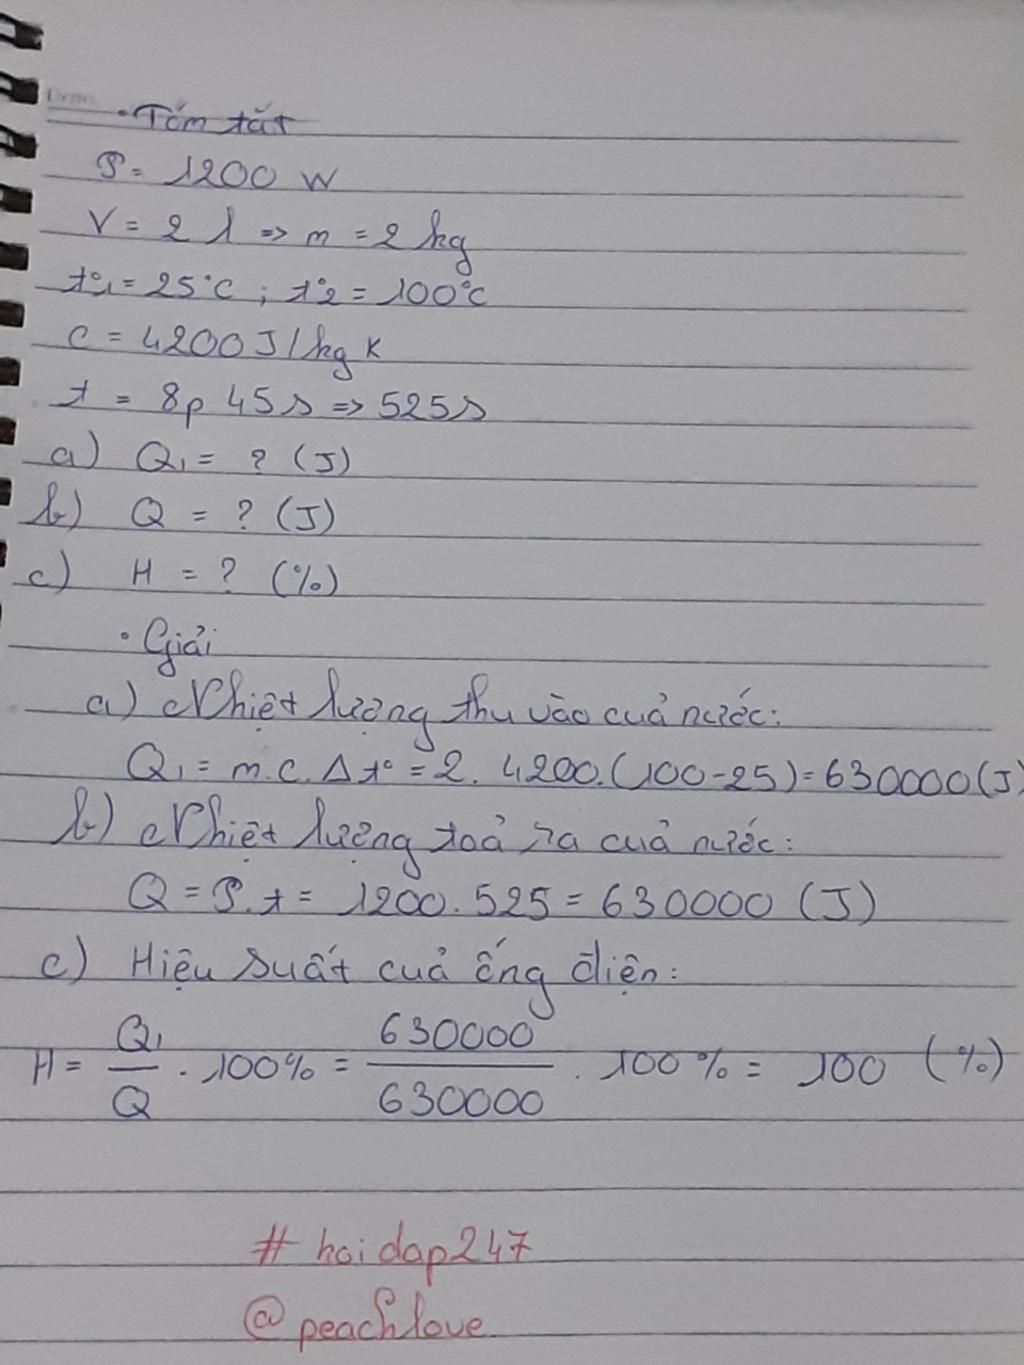 • Tóm tắt
P = 1200 W
V = 2 l => m = 2 kg
t°1 = 25°C ; t°2 = 100°C
c = 4200 J/kg K
t = 8p 45s => 525s
a) Q1 = ? (J)
b) Q = ? (J)
c) H = ? (%)
• Giải
a) Nhiệt lượng thu vào cuả nước:
Q1 = m.c.Δt° = 2. 4200.(100-25) = 630000 (J)
b) Nhiệt lượng toả ra cuả nước:
Q = P.t = 1200.525 = 630000 (J)
c) Hiệu suất cuả ống điện:
H = Q1/Q . 100% = 630000/630000 . 100% = 100 (%)
# hoidap247
@peachlove